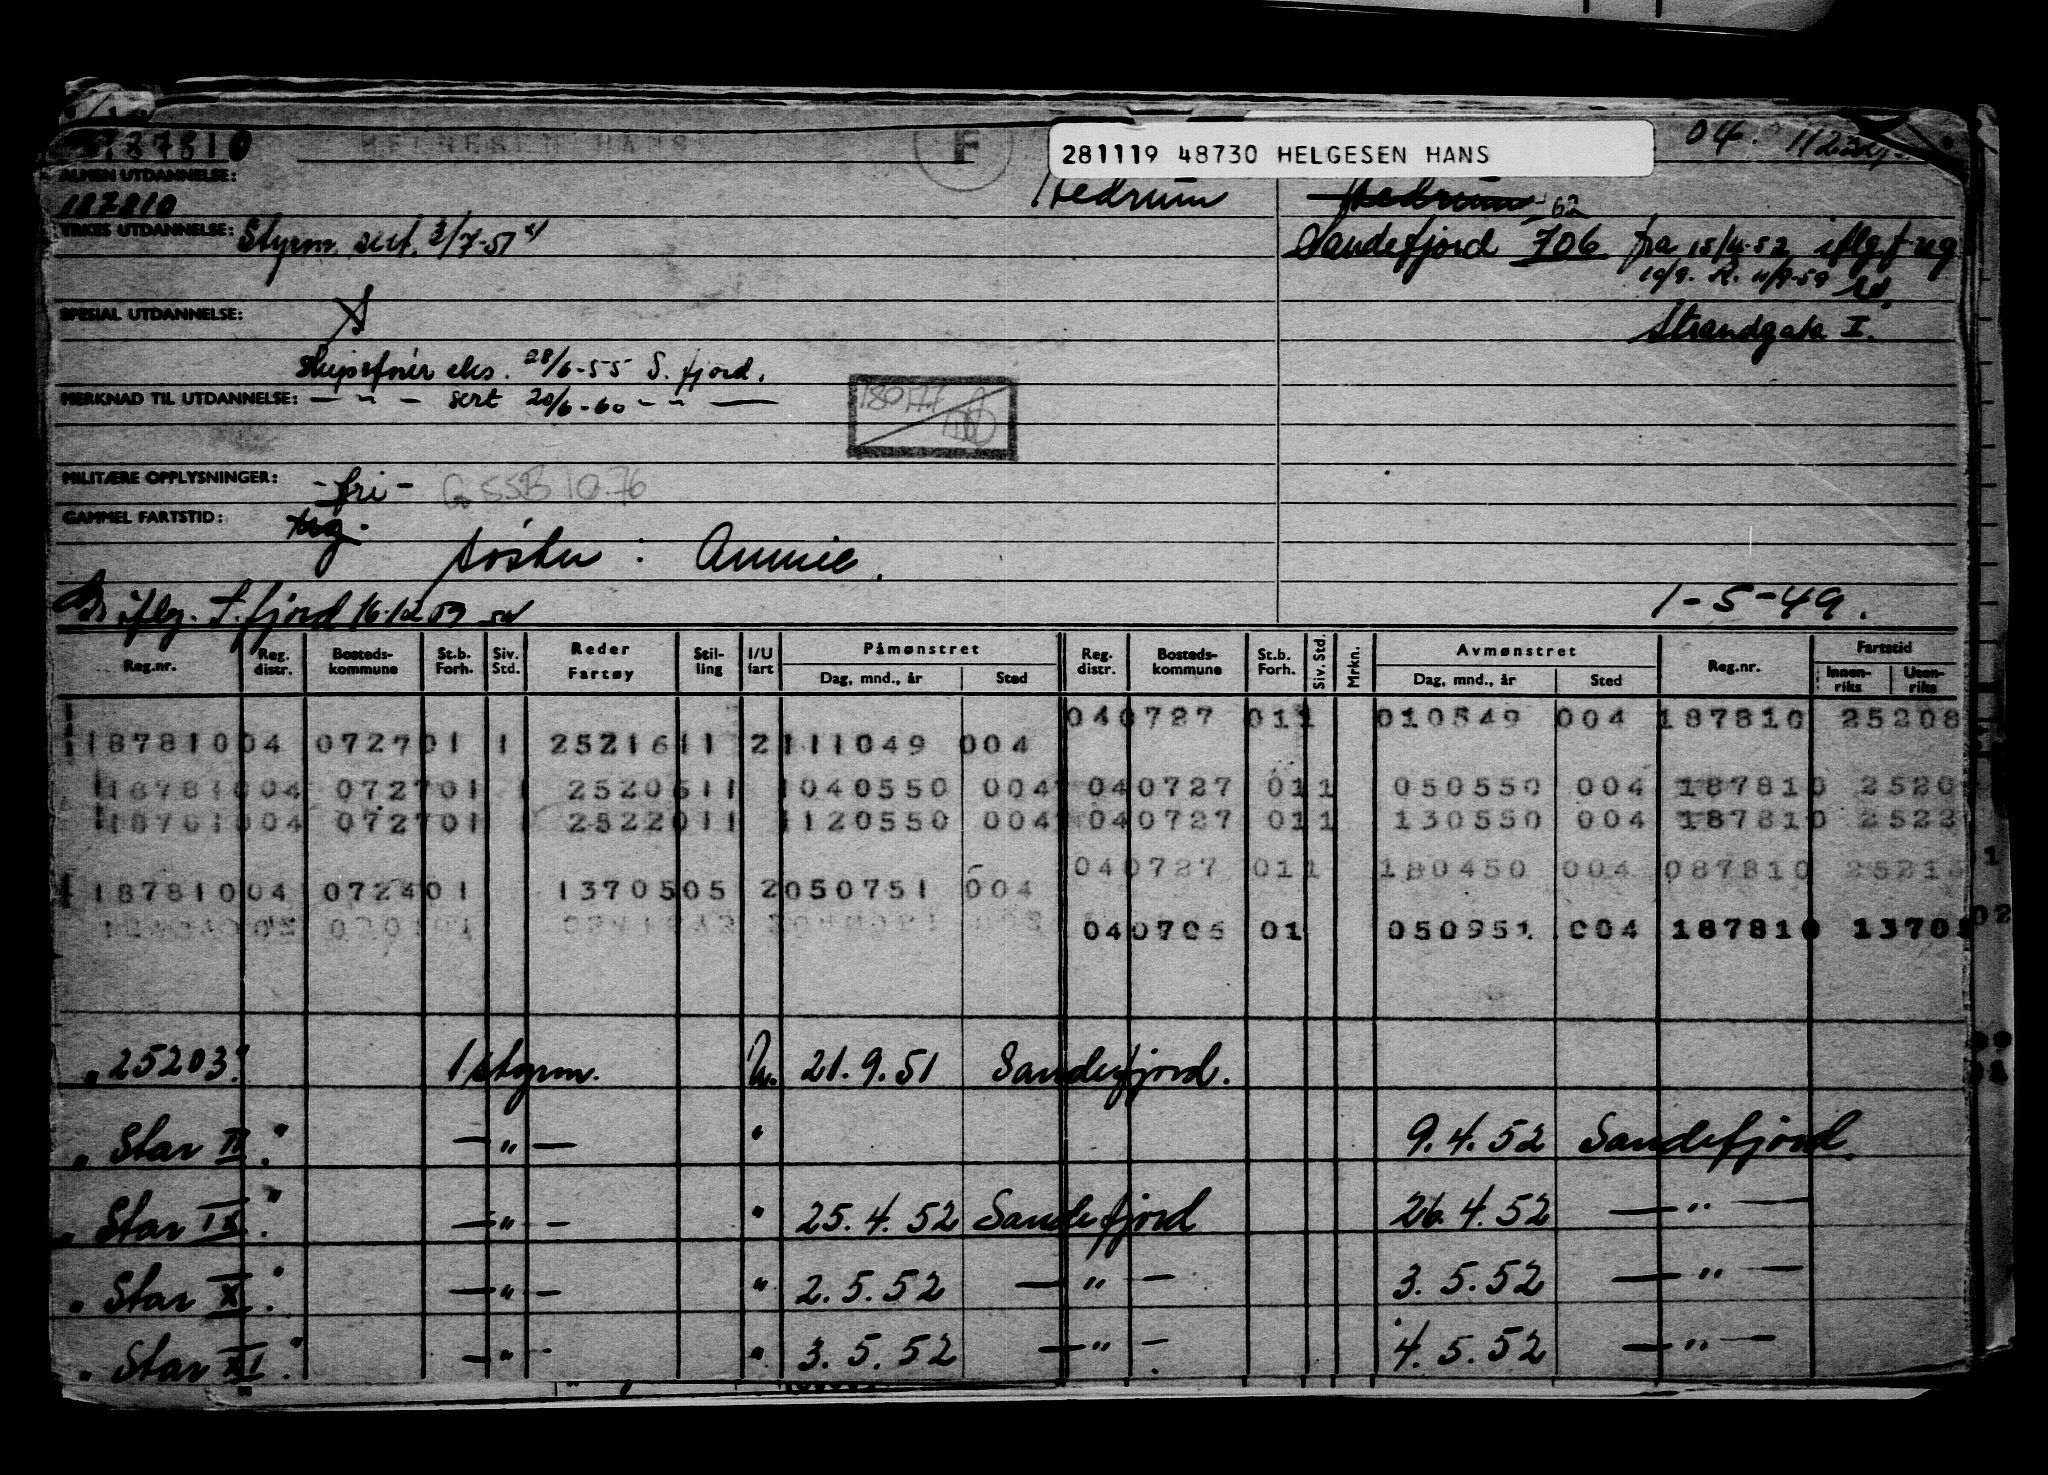 187810 HELGESEN HANS F 281119 48730 HELGESEN HANS 04.
ALMEN UTDANNELSE: Hedrum Hedrum
187810 62
YRKES UTDANNELSE: Styrm. sert. 3/7-51 Sandefjord 706 fra 15/4-52 iflg. f.reg
10/9. R. 11/9-59
SPESIAL UTDANNELSE: Strandgata I.
Skipsfører eks. 28/6-55 S. fjord.
MERKNAD TIL UTDANNELSE: — " — sert 20/6-60 - " —
180177
MILITÆRE OPPLYSNINGER: - fri -
GAMMEL FARTSTID:
søster : Annie.
iflg. S. fjord 16.12.59 1-5-49.
Reg.nr. Reg. distr. Bosteds-kommune St.b. Forh. Siv. Std. Reder Fartøy Stil-ling I/U fart Påmønstret Dag, mnd., år Sted Reg. distr. Bosteds-kommune St.b. Forh. Siv. Std. Mrkn. Avmønstret Dag, mnd., år Sted Reg.nr. Fartstid Innen-riks Uten-riks
040727 011 010549 004 187810 25208
18781004 072701 1 2521611 2111049 004
18781004 072701 1 2520611 1040550 004 040727 011 050550 004 187810 2520
18781004 072701 1 2522011 1120550 004 040727 011 130550 004 187810 2522
040727 011 180450 004 087810 2521
18781004 072401 1370505 2050751 004
040706 01 050951 004 187810 1370
" 25203. 1 styrm. U. 21.9.51 Sandefjord.
" Star II." — " — " 9.4.52 Sandefjord.
" Star IX." — " — " 25.4.52 Sandefjord 26.4.52 — " —
" Star X." — " — " 2.5.52 — " — 3.5.52 — " —
" Star XI." — " - " 3.5.52 — " — 4.5.52 — " —